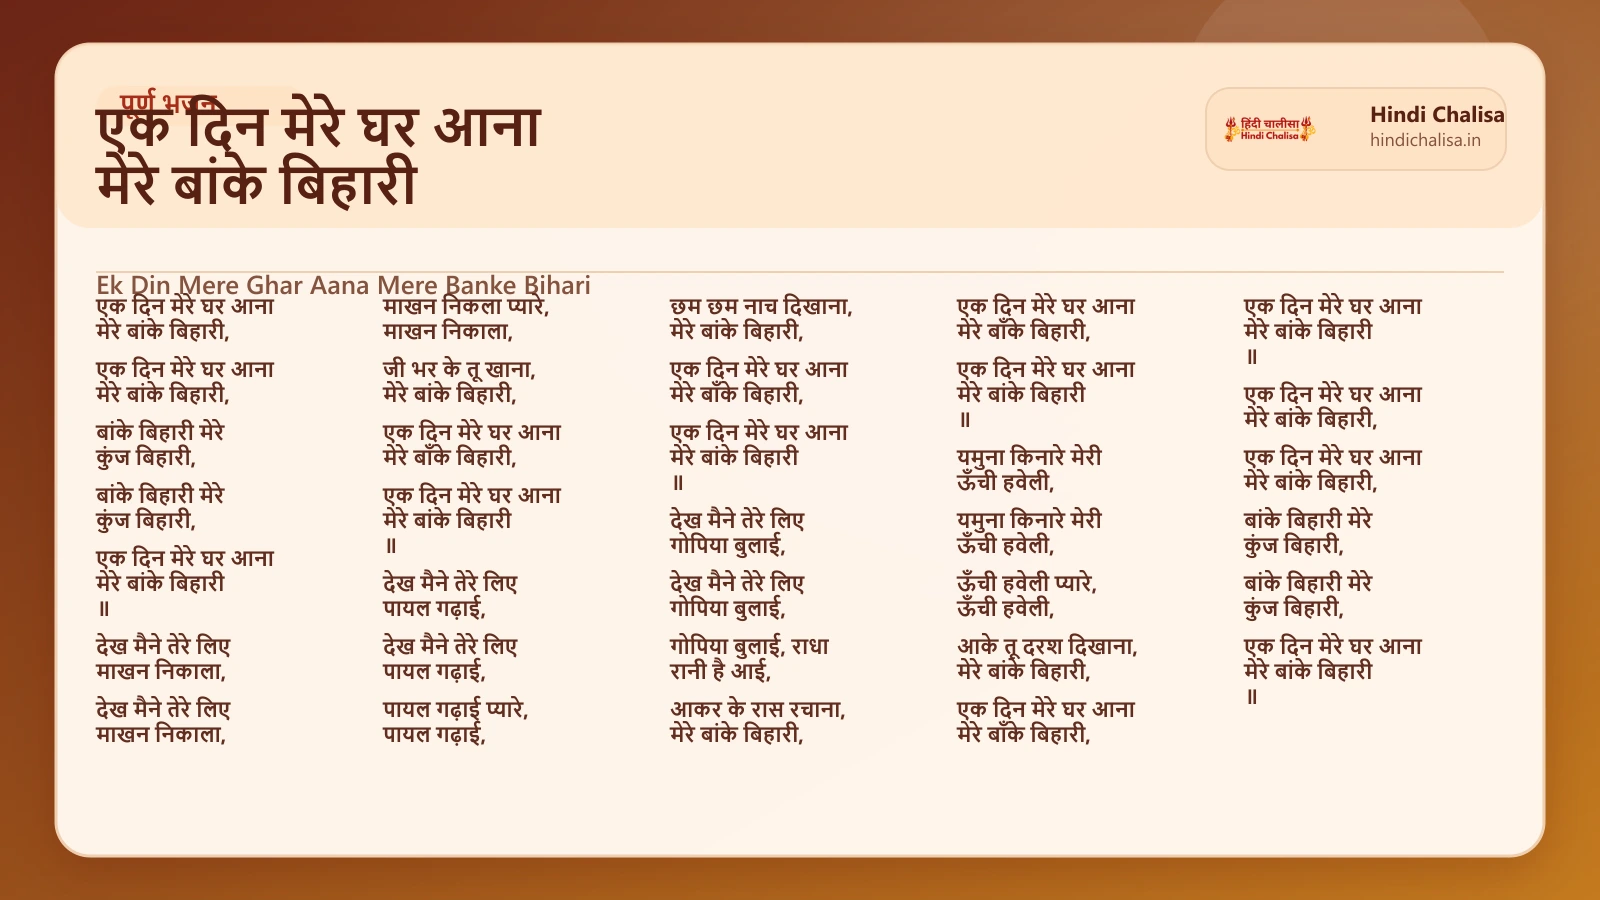 पूर्ण भजन
एक दिन मेरे घर आना
मेरे बांके बिहारी
हिंदी चालीसा
Hindi Chalisa
Hindi Chalisa
hindichalisa.in
Ek Din Mere Ghar Aana Mere Banke Bihari
एक दिन मेरे घर आना
मेरे बांके बिहारी,
एक दिन मेरे घर आना
मेरे बांके बिहारी,
बांके बिहारी मेरे
कुंज बिहारी,
बांके बिहारी मेरे
कुंज बिहारी,
एक दिन मेरे घर आना
मेरे बांके बिहारी
॥
देख मैने तेरे लिए
माखन निकाला,
देख मैने तेरे लिए
माखन निकाला,
माखन निकला प्यारे,
माखन निकाला,
जी भर के तू खाना,
मेरे बांके बिहारी,
एक दिन मेरे घर आना
मेरे बाँके बिहारी,
एक दिन मेरे घर आना
मेरे बांके बिहारी
॥
देख मैने तेरे लिए
पायल गढ़ाई,
देख मैने तेरे लिए
पायल गढ़ाई,
पायल गढ़ाई प्यारे,
पायल गढ़ाई,
छम छम नाच दिखाना,
मेरे बांके बिहारी,
एक दिन मेरे घर आना
मेरे बाँके बिहारी,
एक दिन मेरे घर आना
मेरे बांके बिहारी
॥
देख मैने तेरे लिए
गोपिया बुलाई,
देख मैने तेरे लिए
गोपिया बुलाई,
गोपिया बुलाई, राधा
रानी है आई,
आकर के रास रचाना,
मेरे बांके बिहारी,
एक दिन मेरे घर आना
मेरे बाँके बिहारी,
एक दिन मेरे घर आना
मेरे बांके बिहारी
॥
यमुना किनारे मेरी
ऊँची हवेली,
यमुना किनारे मेरी
ऊँची हवेली,
ऊँची हवेली प्यारे,
ऊँची हवेली,
आके तू दरश दिखाना,
मेरे बांके बिहारी,
एक दिन मेरे घर आना
मेरे बाँके बिहारी,
एक दिन मेरे घर आना
मेरे बांके बिहारी
॥
एक दिन मेरे घर आना
मेरे बांके बिहारी,
एक दिन मेरे घर आना
मेरे बांके बिहारी,
बांके बिहारी मेरे
कुंज बिहारी,
बांके बिहारी मेरे
कुंज बिहारी,
एक दिन मेरे घर आना
मेरे बांके बिहारी
॥